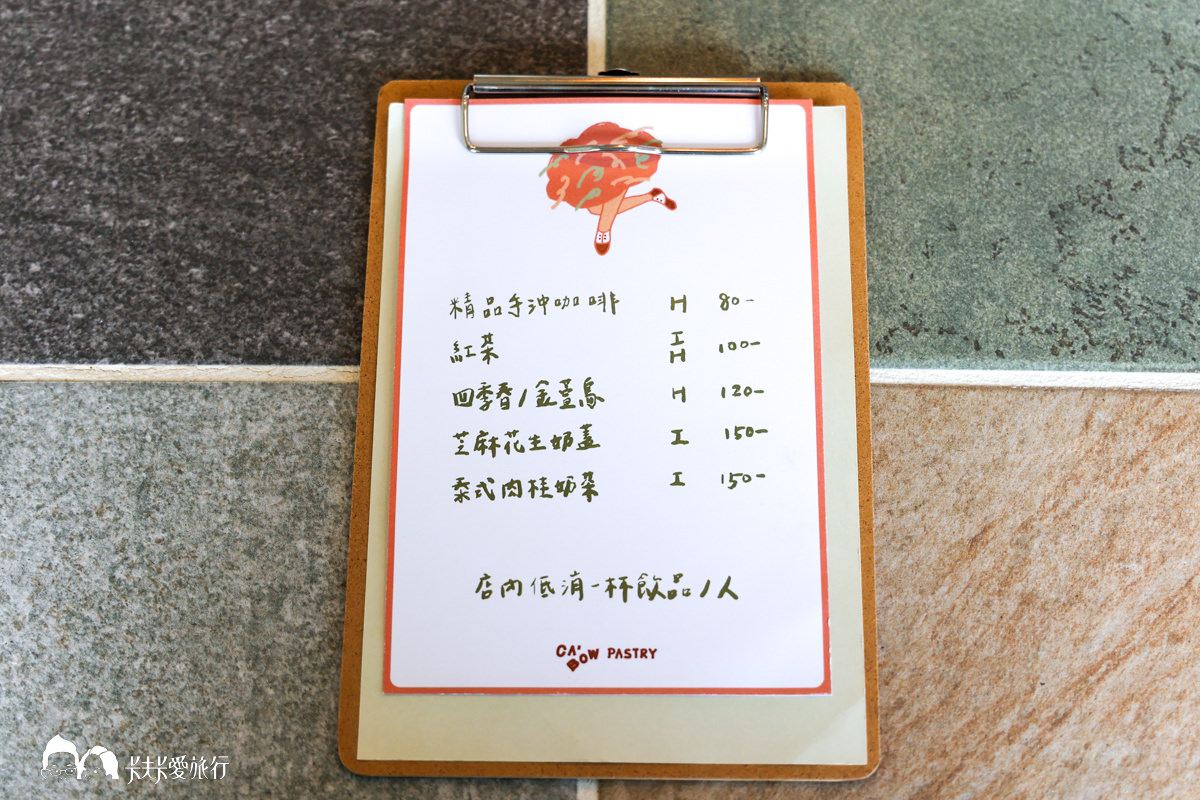 精品手沖咖啡 H 80-
紅茶 I H 100-
四季春/金萱烏 H 120-
芝麻花生奶蓋 I 150-
泰式肉桂奶茶 I 150-
店內低消一杯飲品/人
CA'BOW PASTRY
卡夫卡愛旅行